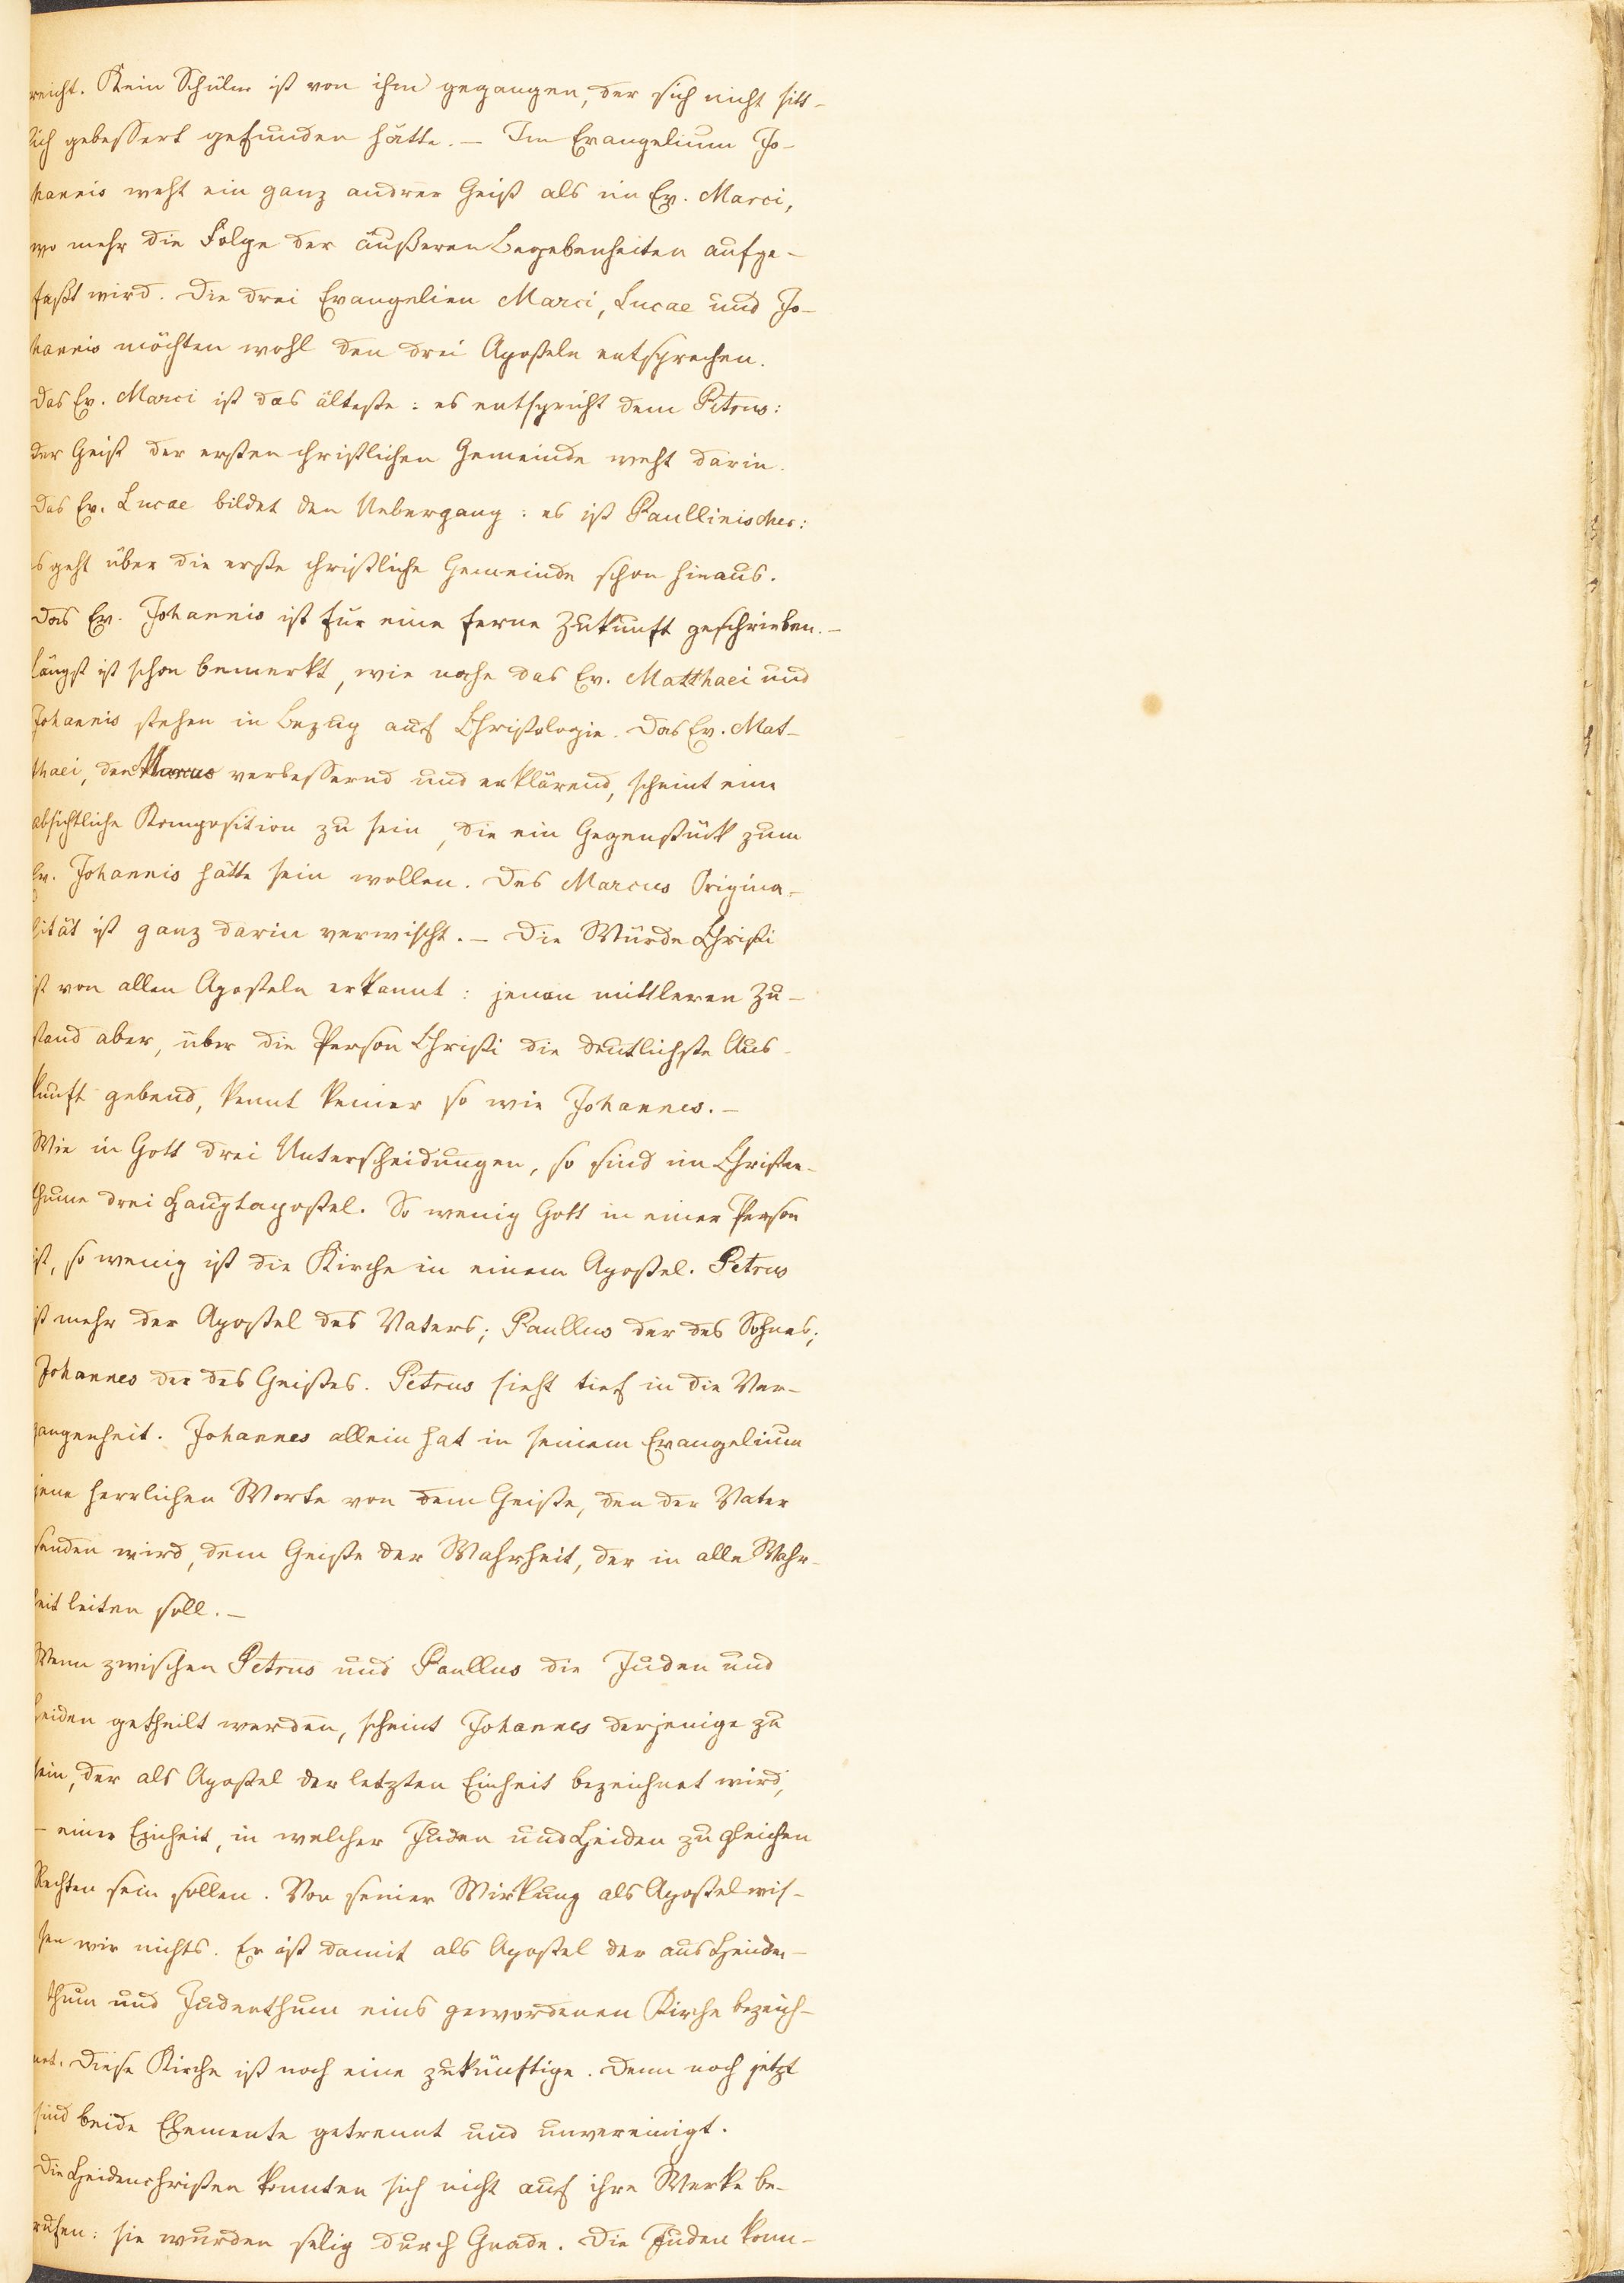 reicht. Kein Schüler ist von ihm gegangen, der sich nicht sitt-
lich gebessert gefunden hätte. – Im Evangelium Jo-
hannis weht ein ganz andrer Geist als im Ev. Marci,
wo mehr die Folge der äußeren Begebenheiten aufge-
faßt wird. Die drei Evangelien Marci, Lucae und Jo-
hannis möchten wohl den drei Aposteln entsprechen.
Das Ev. Marci ist das älteste: es entspricht dem Petrus:
der Geist der ersten christlichen Gemeinde weht darin.
Das Ev. Lucae bildet den Uebergang: es ist Paullinischer:
es geht über die erste christliche Gemeinde schon hinaus.
Das Ev. Johannis ist für eine ferne Zukunft geschrieben. –
Längst ist schon bemerkt, wie nahe das Ev. Matthaei und
Johannis stehen in Bezug auf Christologie. Das Ev. Mat-
thaei, den Marcus verbessernd und erklärend, scheint eine
absichtliche Komposition zu sein, die ein Gegenstück zum
Ev. Johannis hätte sein wollen. Des Marcus Origina-
lität ist ganz darin verwischt. – Die Würde Christi
ist von allen Aposteln erkannt: jenen mittleren Zu-
stand aber, über die Person Christi die deutlichste Aus-
kunft gebend, kennt keiner so wie Johannes. –
Wie in Gott drei Unterscheidungen, so sind im Christen-
thume drei Hauptapostel. So wenig Gott in einer Person
ist, so wenig ist die Kirche in einem Apostel. Petrus
ist mehr der Apostel des Vaters; Paullus der des Sohnes;
Johannes der des Geistes. Petrus sieht tief in die Ver-
gangenheit. Johannes allein hat in seinem Evangelium
jene herrlichen Worte von dem Geiste, den der Vater
senden wird, dem Geiste der Wahrheit, der in alle Wahr-
heit leiten soll. –
Wenn zwischen Petrus und Paullus die Juden und
Heiden getheilt werden, scheint Johannes derjenige zu
sein, der als Apostel der letzten Einheit bezeichnet wird,
– einer Einheit, in welcher Juden und Heiden zu gleichen
Rechten sein sollen. Von seiner Wirkung als Apostel wis-
sen wir nichts. Er ist damit als Apostel der aus Heiden-
thum und Judenthum eins gewordenen Kirche bezeich-
net. Diese Kirche ist noch eine zukünftige. Denn noch jetzt
sind beide Elemente getrennt und unvereinigt.
Die Heidenchristen konnten sich nicht auf ihre Werke be-
rufen: sie wurden selig durch Gnade. Die Juden konn-